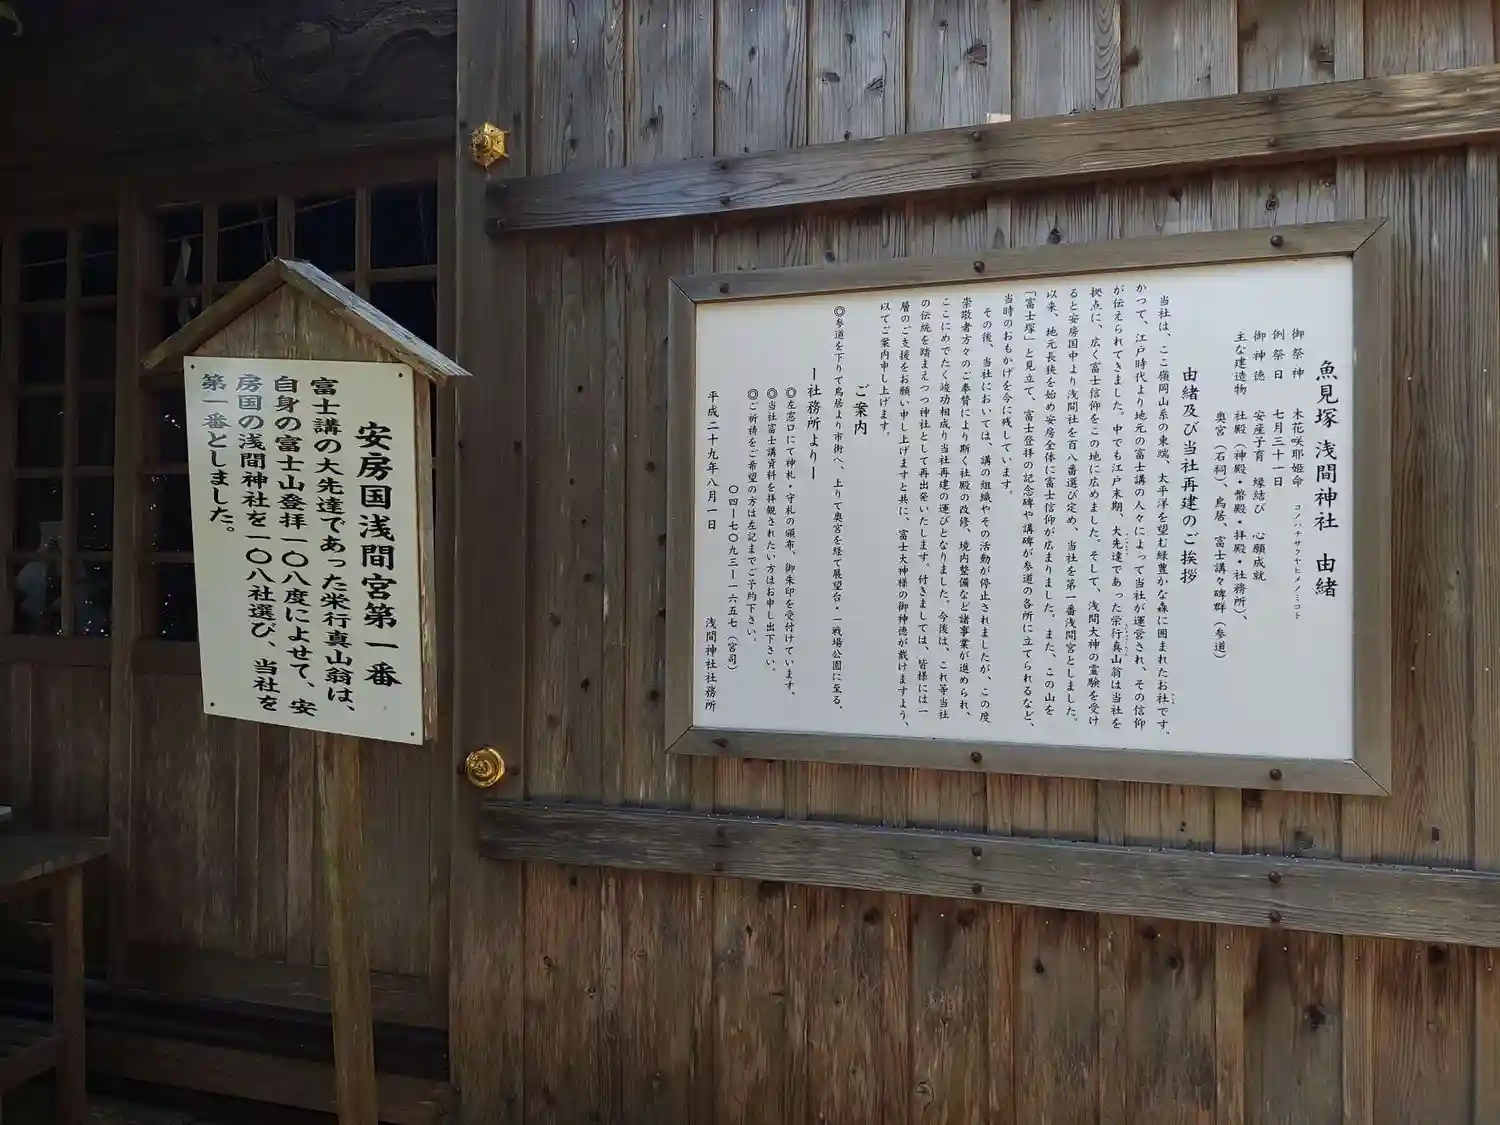 安房国浅間宮第一番
富士講の大先達であった栄行真山翁は、
自身の富士山登拝一〇八度によせて、安
房国の浅間神社を一〇八社選び、当社を
第一番としました。
魚見塚 浅間神社 由緒
御祭神 木花咲耶姫命 コノハナサクヤヒメノミコト
例祭日 七月三十一日
御神徳 安産子育 縁結び 心願成就
主な建造物 社殿（神殿・幣殿・拝殿・社務所）、
奥宮（石祠）、鳥居、富士講々碑群（参道）
由緒及び当社再建のご挨拶
当社は、ここ嶺岡山系の東端、太平洋を望む緑豊かな森に囲まれたお社です。
かつて、江戸時代より地元の富士講の人々によって当社が運営され、その信仰
が伝えられてきました。中でも江戸末期、大先達であった栄行真山翁は当社を
拠点に、広く富士信仰をこの地に広めました。そして、浅間大神の霊験を受け
ると安房国中より浅間社を百八番選び定め、当社を第一番浅間宮としました。
以来、地元長狭を始め安房全体に富士信仰が広まりました。また、この山を
「富士塚」と見立て、富士登拝の記念碑や講碑が参道の各所に立てられるなど、
当時のおもかげを今に残しています。
その後、当社においては、講の組織やその活動が停止されましたが、この度
崇敬者方々のご奉賛により斯く社殿の改修、境内整備など諸事業が進められ、
ここにめでたく竣功相成り当社再建の運びとなりました。今後は、これ等当社
の伝統を踏まえつつ神社として再出発いたします。付きましては、皆様には一
層のご支援をお願い申し上げますと共に、富士大神様の御神徳が戴けますよう、
以てご案内申し上げます。
ご案内
◎参道を下りて鳥居より市街へ、上りて奥宮を経て展望台・一戦場公園に至る。
ー社務所よりー
◎左窓口にて神札・守札の頒布、御朱印を受付けています。
◎当社富士講資料を拝観されたい方はお申し出下さい。
◎ご祈祷をご希望の方は左記までご予約下さい。
〇四ー七〇九三ー一六五七（宮司）
平成二十九年八月一日 浅間神社社務所